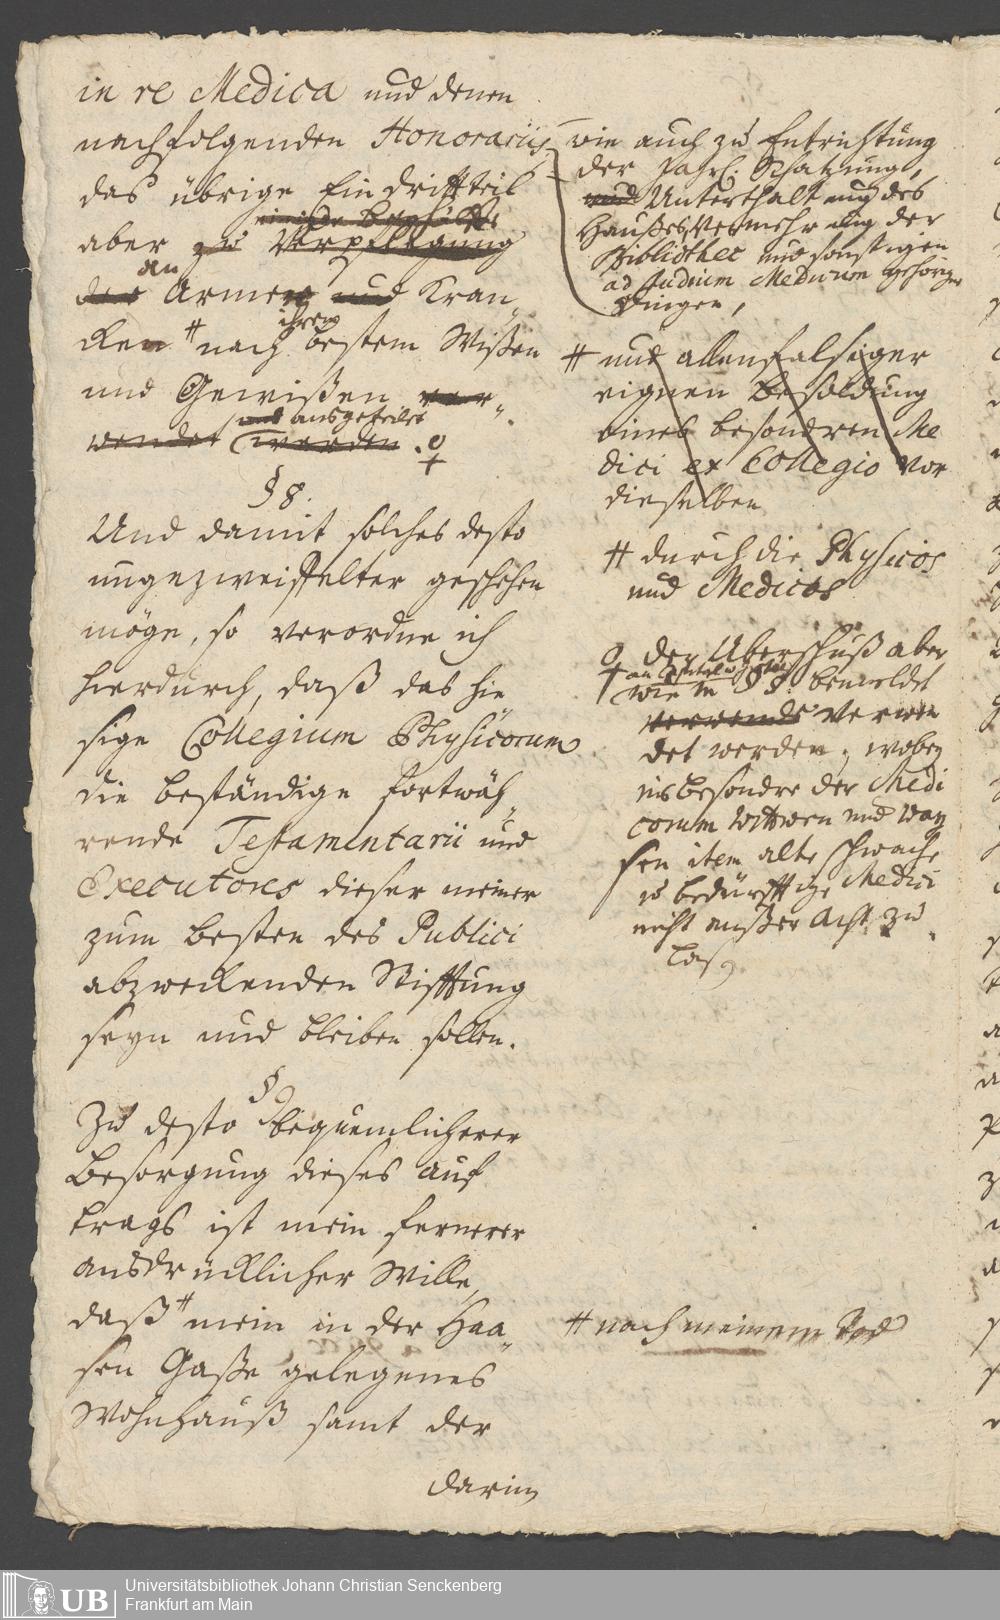 in re Medica und denen
nachfolgenden Honorariis
das übrige Ein drittteil
einige Beyhülffe
aber zu Verpflegung
an
der Armen und Kran„
ken # nach ihrem bestem Wißen
und Gewißen ver„
und ausgeteilet
wendet werden. ♀
§ 8.
Und damit solches desto
ungezweiffelter geschehen
möge, so verordne ich
hierdurch, daß das hie
sige Collegium Physicorum
die beständige fortwäh„
rende Testamentarii und
Executores dieser meiner
zum besten des Publici
abzweckenden Stifftung
seyn und bleiben sollen.
§ 9
Zu desto bequemlicherer
Besorgung dieses auf
trags ist mein fernerer
ausdrücklicher Wille,
daß # mein in der Haa„
sen Gaße gelegenes
Wohnhauß samt der
darin
wie auch zu Entrichtung
der Jährl. Schatzung,
und Unterhaltung des
Haußes, Vermehrung der
Bibliothec und sonstigen
ad studium Medicum gehörigen
Dingen,
# und allenfalsiger
eignen Besoldung
eines besondren Me
dici ex Collegio vor
dieselben
# durch die Physicos
und Medicos
♀ der Uberschuß aber
wie in § 8. bemeldet
verwende verwen
det werden, wobey
insbesondre der Medi
corum Wittwen und Way
sen item alte schwache
u bedürfftige Medici
nicht außer Acht zu
laß.
# nach meinem Tod
Universitätsbibliothek Johann Christian Senckenberg
Frankfurt am Main
UB